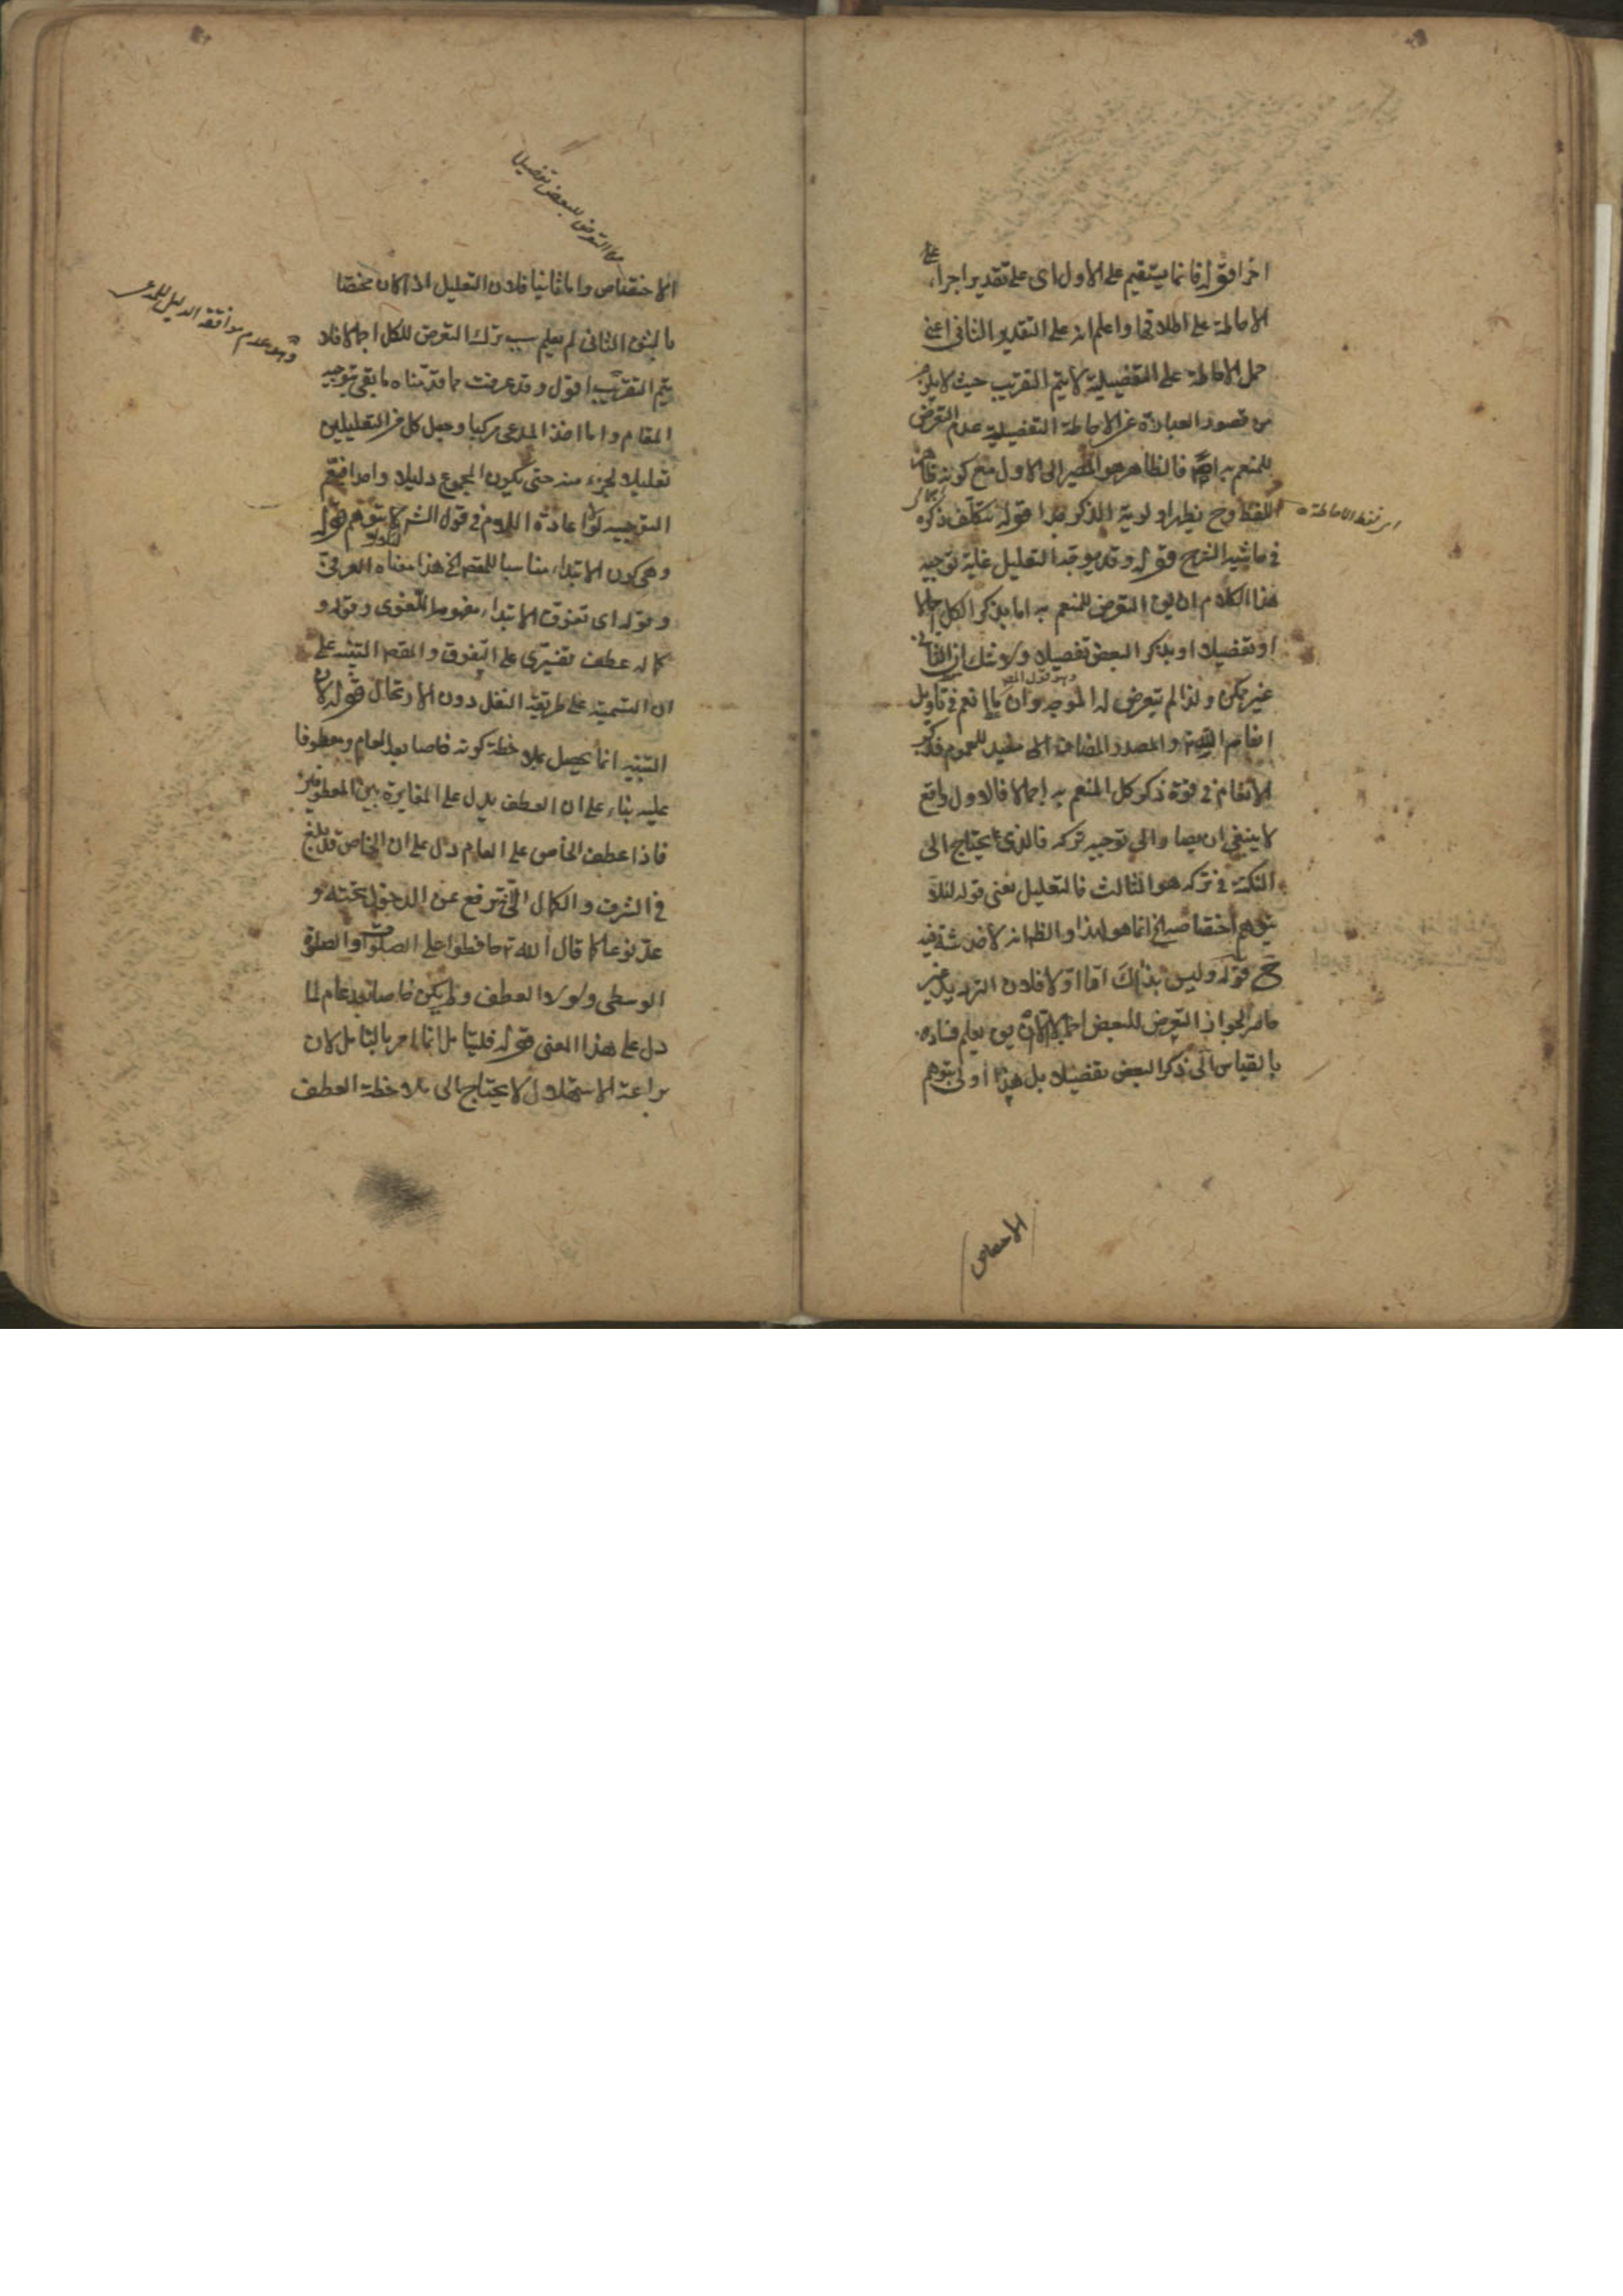 اخرا قوله فانما يستقيم على الاول اى على تقدير اجراء
الاحاطة على اطلاقها واعلم انه على التقدير الثانى اعنى
حمل الاحاطة على التفضيلية لا يتم التقريب حيث لا يلزم
من قصور العبارة عن الاحاطة التفضيلية عدم التعرض
للمنعم به فالظاهر هو المصير الى الاول مع كونه
اللفظ وح يظهر اولوية الذكر قوله بتكلف ذكره
فى حاشية الشرح قوله وقد يوجه التعليل غاية توجيه
هذا الكلام ان التعرض للمنعم به اما بذكر الكل اجمالا
او تفضيلا او بذكر البعض تفصيلا ولا شك ان الثانى
غير ممكن ولذا لم يتعرض له الموجه وان ما انعم فى تاويل
انعام الله والمصدر المضاف الى مفيد للعموم فذكر
الانعام فى قوة ذكر كل المنعم به اجمالا فالاول واقع
لا ينبغى ان يصار الى توجيه تركه فالذى يحتاج الى
النكتة فى تركه هو الثالث فالتعليل يعنى قوله لئلا
يتوهم اختصاصه الخ انما هو لهذا والظ انه لا خدشة فيه
ح قوله وليس بذاك اما اولا فلان الترديد غير
حاصر لجواز التعرض للبعض اجمالا يعلم فساده
بالقياس الى ذكر البعض تفضيلا بل هذا اولى بتوهم
الاختصاص
اى لفظ الاحاطة
وهو قول المص
الاختصاص واما ثانيا فلان التعليل اذا كان مختصا
بالشق الثانى لم يعلم سبب ترك التعرض للكل اجمالا فلا
يتم التقريب اقول وقد عرفت مما قدمناه ما بقى بتوجيه
المقام واما اخذ المدعى مركبا وجعل كل من التعليلين
تعليلا لجزء منه حتى يكون المجموع دليلا واحدا
التوجيه لولا اعادة اللام فى قول الشر لئلا يتوهم قوله
وهى كون الابتداء مناسبا للمقص الخ هذا معناه العرفى
وقوله اى تفوق الابتداء مفهومه اللغوى وقوله و
كماله عطف تفسيرى على التفوق والمقص التنبيه على
ان التسمية على طريقة النقل دون الارتجال قوله لان
التنبيه انما يحصل بملاحظة كونه خاصا بعد العام ومعطوفا
عليه بناء على ان العطف يدل على المغايرة بين المعطوفين
فاذا عطف الخاص على العام دل على ان الخاص قد بلغ
فى الشرف والكمال الى ترفع عن الدخول تحته و
عد نوعا كما قال الله تع حافظوا على الصلوات والصلوة
الوسطى ولولا العطف ولم يكن خاصا بعد عام لما
دل على هذا المعنى قوله فليتامل انما امر بالتامل لان
براعة الاستهلال لا يحتاج الى ملاحظة العطف
من التعرض للبعض تفصيلا
وهو عدم موافقة الدليل للمدعى